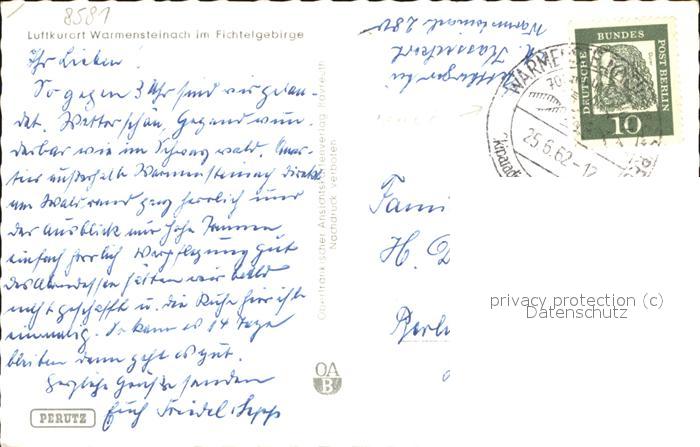 8581
Luftkurort Warmensteinach im Fichtelgebirge
Ihr Lieben!
So gegen 3 Uhr sind wir gelan-
det. Wetter schön, Gegend wun-
derbar wie im Schwarzwald. Quar-
tier außerhalb Warmensteinach direkt
am Waldrand ganz herrlich und
der Ausblick nur hohe Tannen
einfach herrlich Verpflegung gut
das Abendessen hätten wir bald
nicht geschafft u. die Ruhe hier ist
einmalig. So kann es 14 Tage
bleiben dann geht es gut.
Herzliche Grüße senden
Euch Friedel + Sepp
PERUTZ
Oberfränkischer Ansichtskartenverlag Bayreuth
Nachdruck verboten
OA
B
Warmensteinach 280
DEUTSCHE BUNDESPOST BERLIN
10
25.6.62-12
Fami
H.
Berli
privacy protection (c)
Datenschutz